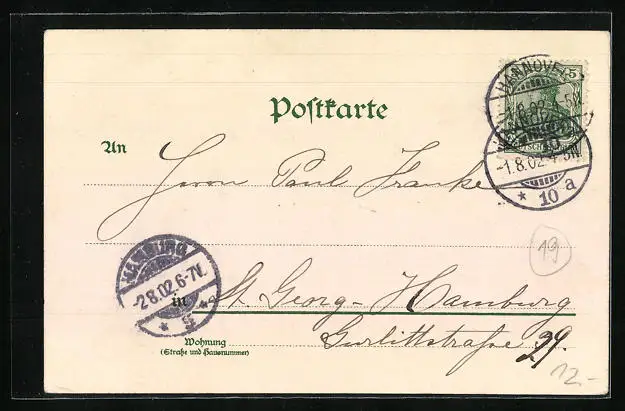 HANNOVER
-1.8.02. 4-5N.
* 10 a
5
Postkarte
An
Herrn Paul Franke
19
HAMBURG
-2.8.02.6-7V.
in St. Georg-Hamburg
Gurlittstraße 29.
Wohnung
(Straße und Hausnummer)
12.-